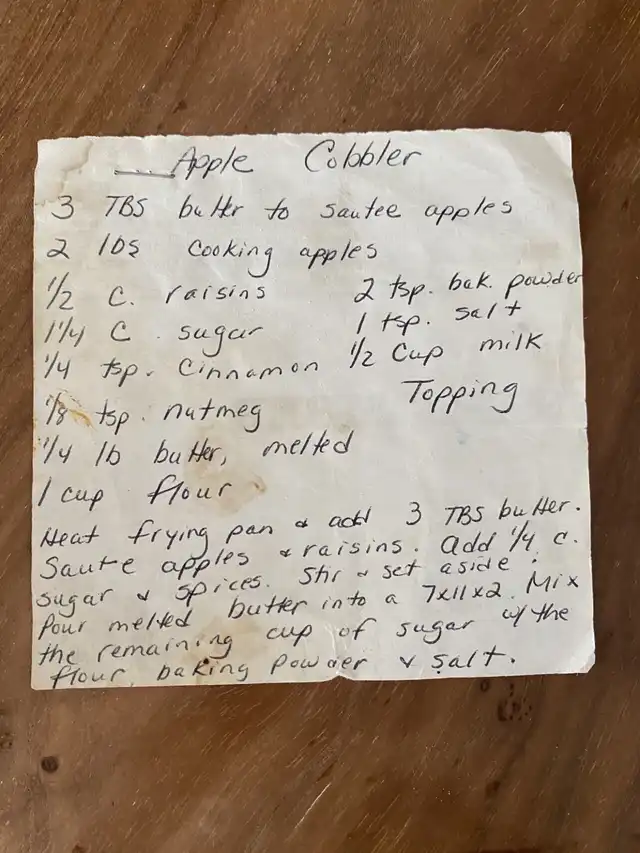 Apple Cobbler
3 TBS butter to sautee apples
2 lbs cooking apples
1/2 C. raisins
1 1/4 C. sugar
1/4 tsp. Cinnamon
1/8 tsp. nutmeg
1/4 lb butter, melted
1 cup flour
2 tsp. bak. powder
1 tsp. salt
1/2 Cup milk
Topping
Heat frying pan & add 3 TBS butter.
Saute apples & raisins. Add 1/4 C.
sugar & spices. Stir & set aside.
Pour melted butter into a 7x11x2. Mix
the remaining cup of sugar w/ the
flour, baking powder & salt.